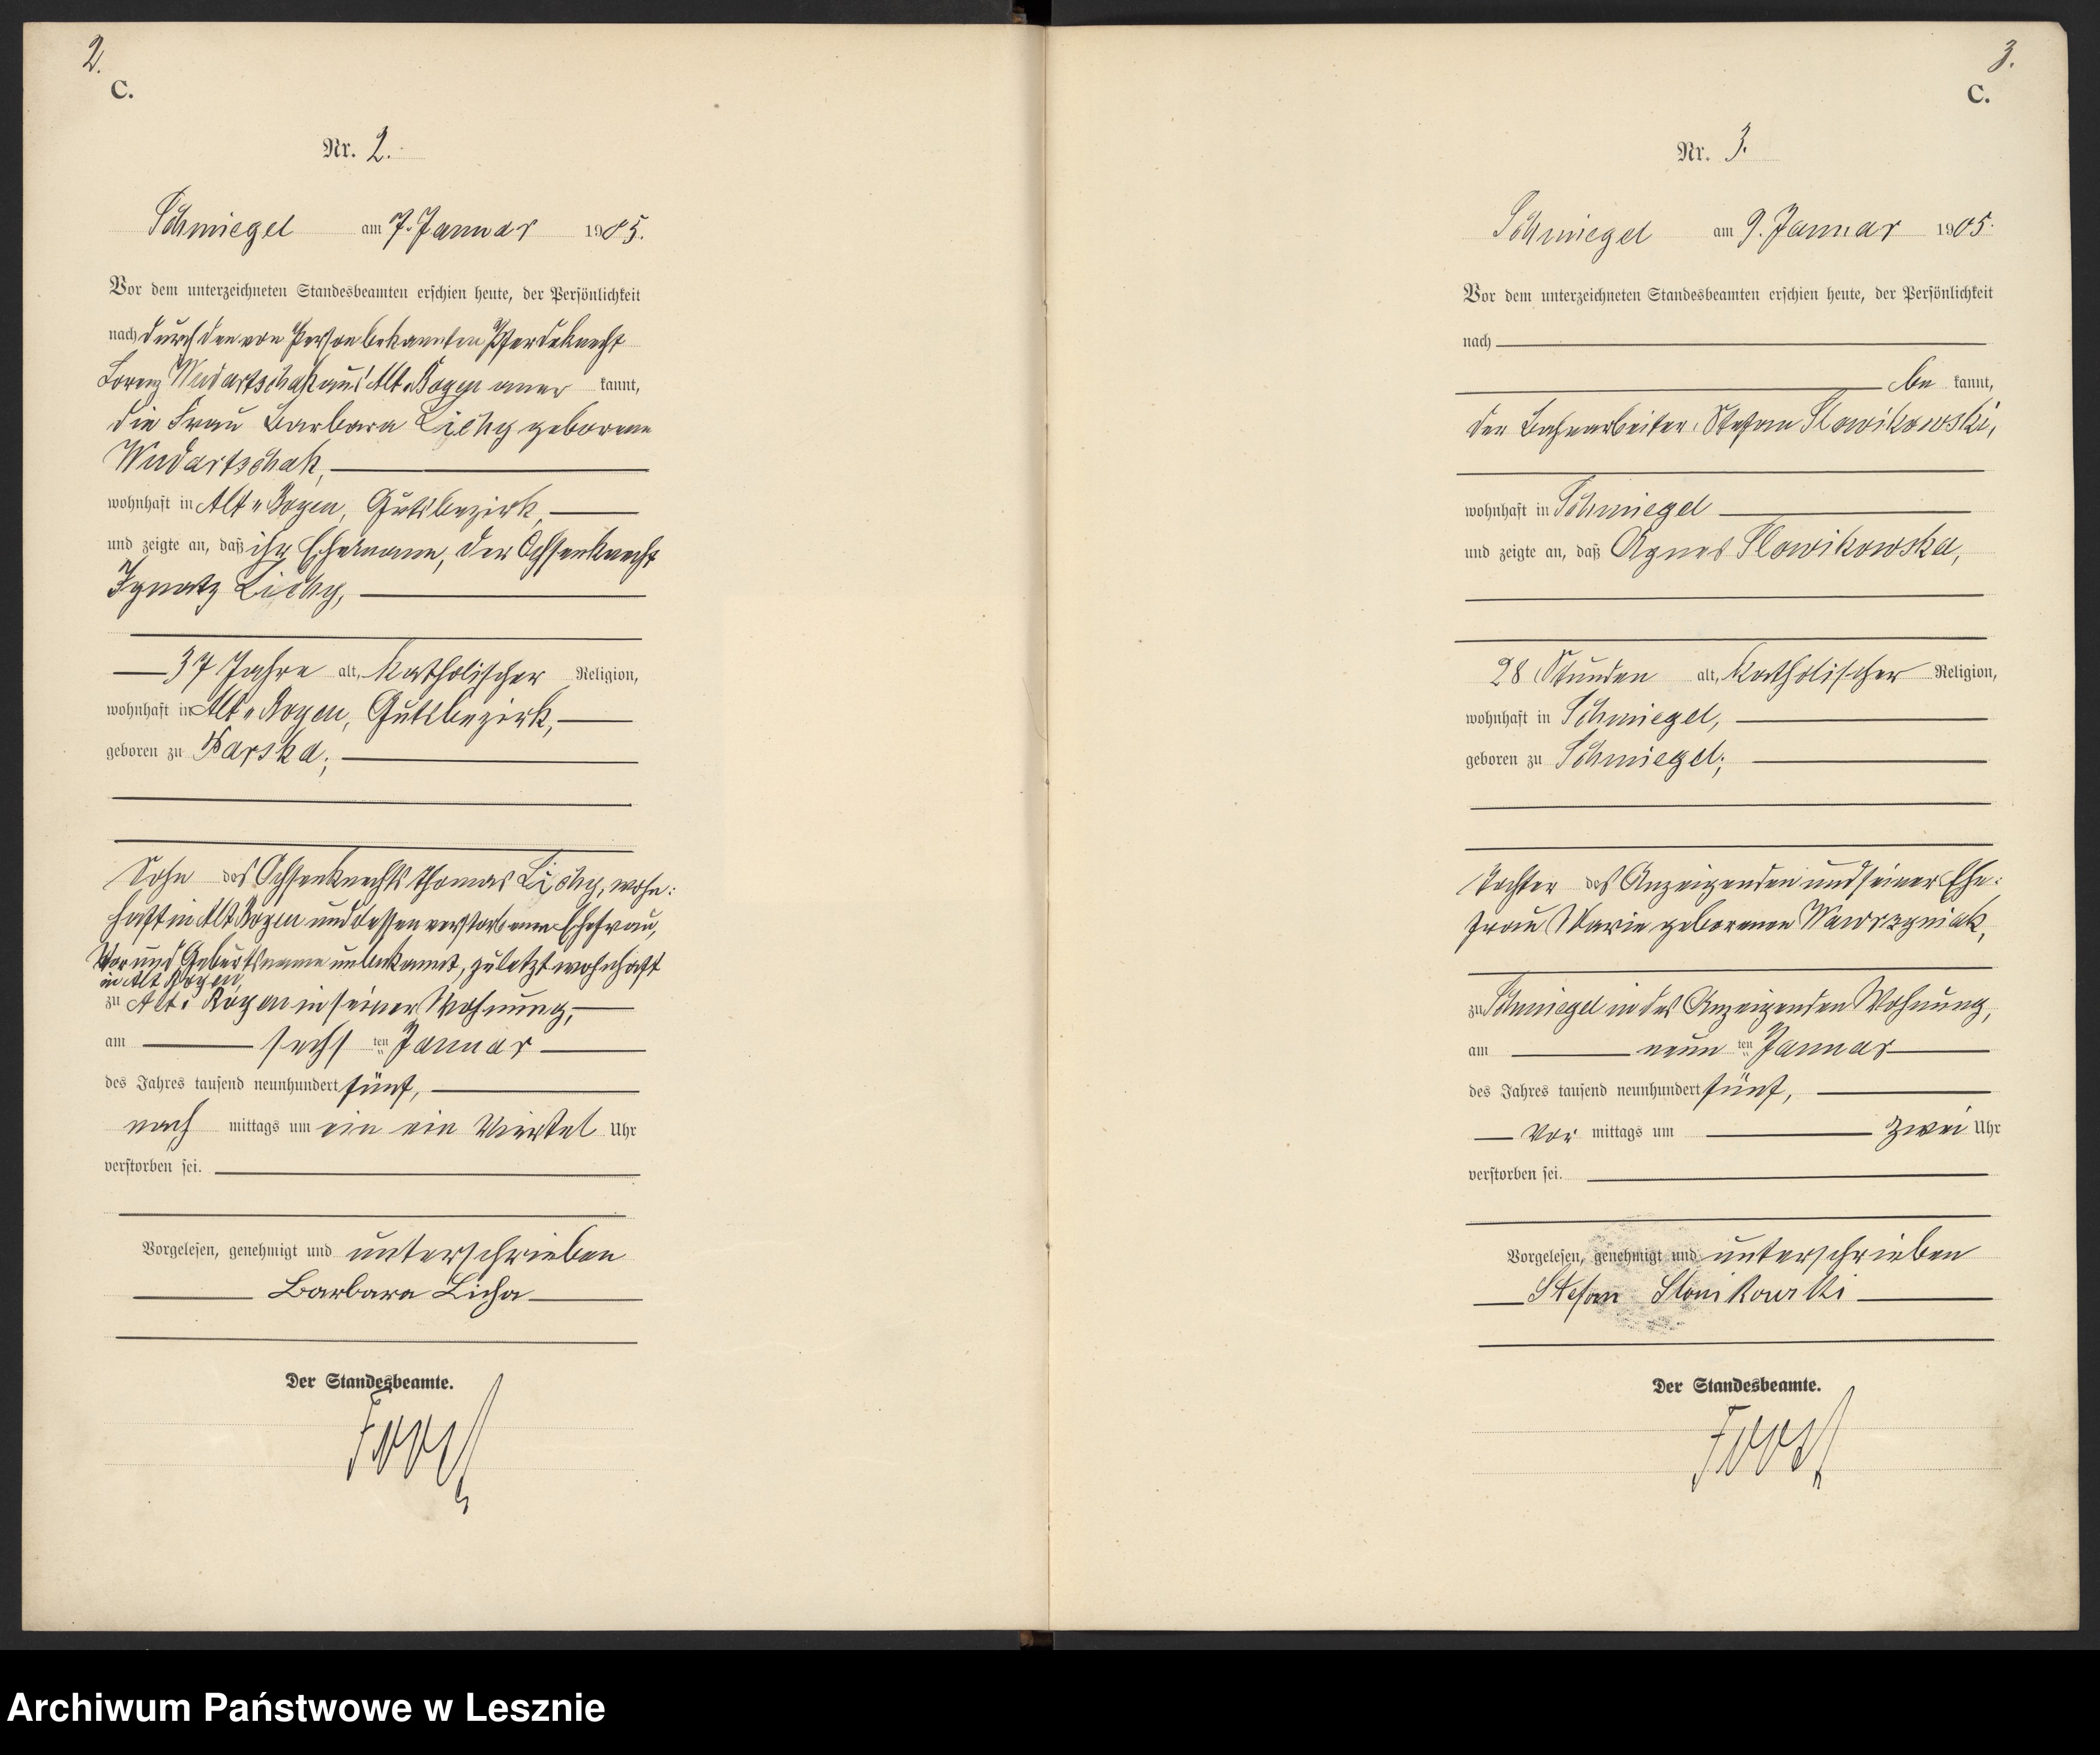 2.
C.
Nr. 2.
Schmiegel am 7. Januar 1905.
Vor dem unterzeichneten Standesbeamten erschien heute, der Persönlichkeit
nach durch den von Person bekannten Pferdeknecht
Lorenz Wudartschak aus Alt-Bogen aner kannt,
die Frau Barbara Lichy geborene
Wudartschak,
wohnhaft in Alt-Bogen, Gutsbezirk,
und zeigte an, daß ihr Ehemann, der Ochsenknecht
Ignatz Lichy,
37 Jahre alt, katholischer Religion,
wohnhaft in Alt-Bogen, Gutsbezirk,
geboren zu Karska;
Sohn des Ochsenknechts Thomas Lichy, wohn:
haft in Alt Bogen und dessen verstorbenen Ehefrau,
Vor und Geburtsname unbekannt, zuletzt wohnhaft
in Alt Bogen,
zu Alt-Bogen in seiner Wohnung,
am sechs ten Januar
des Jahres tausend neunhundert fünf,
nach mittags um ein ein Viertel Uhr
verstorben sei.
Vorgelesen, genehmigt und unterschrieben
Barbara Licha
Der Standesbeamte.
3.
C.
Nr. 3.
Schmiegel am 9. Januar 1905.
Vor dem unterzeichneten Standesbeamten erschien heute, der Persönlichkeit
nach
be kannt,
der Bahnarbeiter Stefan Slowikowski,
wohnhaft in Schmiegel
und zeigte an, daß Agnes Slowikowska,
28 Stunden alt, katholischer Religion,
wohnhaft in Schmiegel,
geboren zu Schmiegel;
Tochter des Anzeigenden und seiner Ehe:
frau Marie geborenen Wawrzyniak,
zu Schmiegel in des Anzeigenden Wohnung,
am neun ten Januar
des Jahres tausend neunhundert fünf,
Vor mittags um zwei Uhr
verstorben sei.
Vorgelesen, genehmigt und unterschrieben
Stefan Slowikowski
Der Standesbeamte.
Archiwum Państwowe w Lesznie